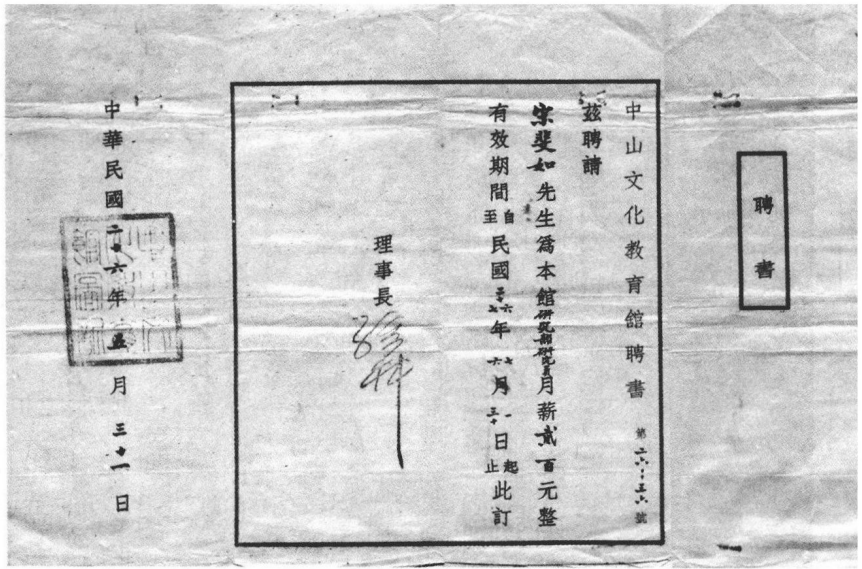 聘書
中山文化教育館聘書 第 號
茲聘請
宋斐如先生爲本館研究部研究員月薪貳百元整
有效期間自至民國二十六七年七六月一三十日起止此訂
理事長 孫科
中華民國二十六年五月三十一日